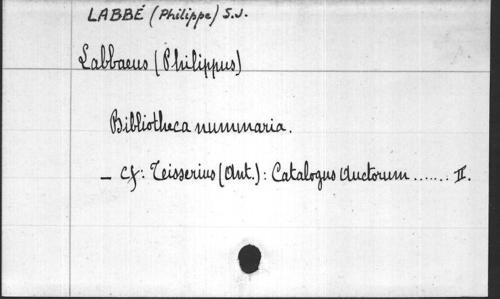 LABBÉ (Philippe) S.J.
Labbaeus (Philippus)
Bibliotheca nummaria.
- Cf: Teisserius (Ant.): Catalogus Auctorum ....... II.